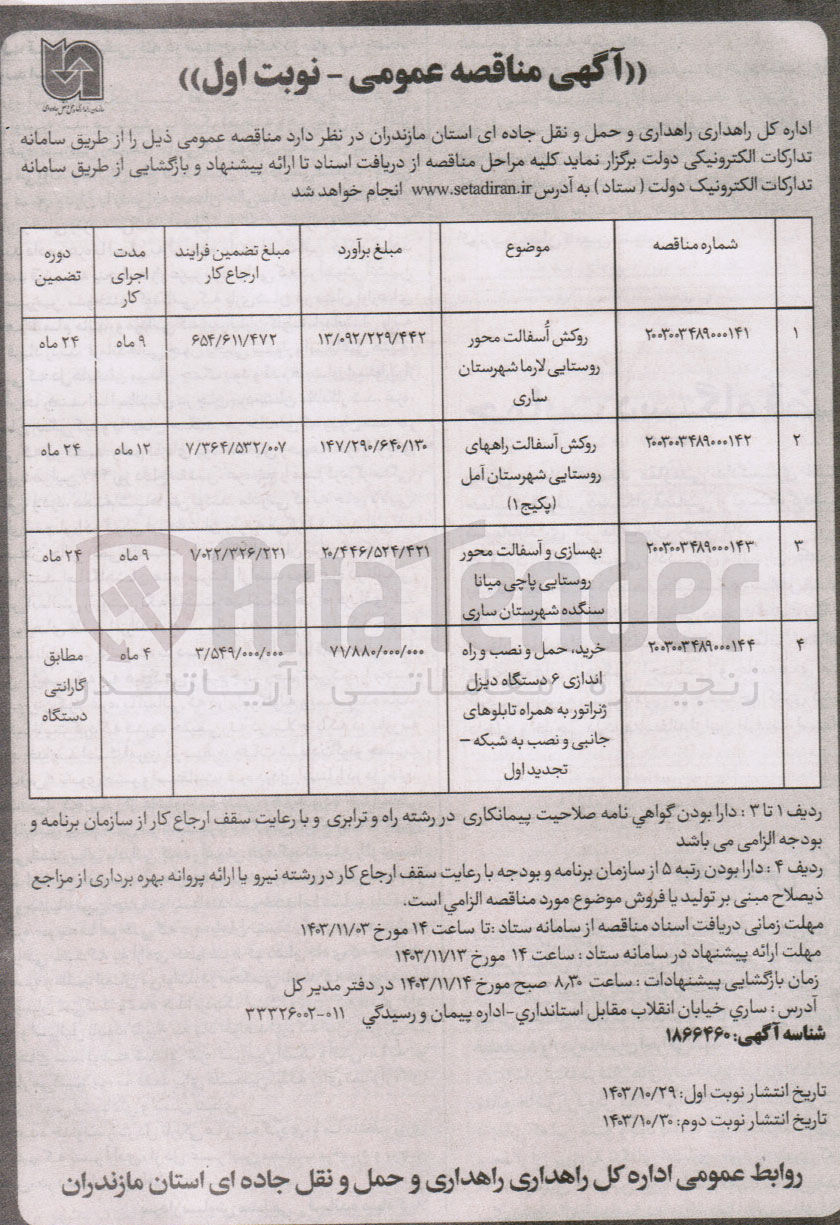 ((آگهی مناقصه عمومی - نوبت اول))
اداره کل راهداری راهداری و حمل و نقل جاده ای استان مازندران در نظر دارد مناقصه عمومی ذیل را از طریق سامانه
تدارکات الکترونیکی دولت برگزار نماید کلیه مراحل مناقصه از دریافت اسناد تا ارائه پیشنهاد و بازگشایی از طریق سامانه
تدارکات الکترونیک دولت ( ستاد ) به آدرس www.setadiran.ir انجام خواهد شد
شماره مناقصه موضوع مبلغ برآورد مبلغ تضمین فرایند ارجاع کار مدت اجرای کار دوره تضمین
۱ ۲۰۰۳۰۰۳۴۸۹۰۰۰۱۴۱ روکش آسفالت محور ۱۳/۰۹۲/۲۲۹/۴۴۲ ۶۵۴/۶۱۱/۴۷۲ ۹ ماه ۲۴ ماه
روستایی لارما شهرستان
ساری
۲ ۲۰۰۳۰۰۳۴۸۹۰۰۰۱۴۲ روکش آسفالت راههای ۱۴۷/۲۹۰/۶۴۰/۱۳۰ ۷/۳۶۴/۵۳۲/۰۰۷ ۱۲ ماه ۲۴ ماه
روستایی شهرستان آمل
(پکیج۱)
۳ ۲۰۰۳۰۰۳۴۸۹۰۰۰۱۴۳ بهسازی و آسفالت محور ۲۰/۴۴۶/۵۲۴/۴۲۱ ۱/۰۲۲/۳۲۶/۲۲۱ ۹ ماه ۲۴ ماه
روستایی پاچی میانا
سنگده شهرستان ساری
۴ ۲۰۰۳۰۰۳۴۸۹۰۰۰۱۴۴ خرید، حمل و نصب و راه ۷۱/۸۸۰/۰۰۰/۰۰۰ ۳/۵۴۹/۰۰۰/۰۰۰ ۴ ماه مطابق
اندازی ۶ دستگاه دیزل گارانتی
ژنراتور به همراه تابلوهای دستگاه
جانبی و نصب به شبکه –
تجدید اول
AriaTender
زنجیره معاملاتی آریاتندر
ردیف ۱ تا ۳ : دارا بودن گواهي نامه صلاحیت پیمانکاری در رشته راه و ترابری و با رعایت سقف ارجاع کار از سازمان برنامه و
بودجه الزامی می باشد
ردیف ۴ : دارا بودن رتبه ۵ از سازمان برنامه و بودجه با رعایت سقف ارجاع کار در رشته نیرو یا ارائه پروانه بهره برداری از مراجع
ذیصلاح مبنی بر تولید یا فروش موضوع مورد مناقصه الزامي است.
مهلت زمانی دریافت اسناد مناقصه از سامانه ستاد :تا ساعت ۱۴ مورخ ۱۴۰۳/۱۱/۰۳
مهلت ارائه پیشنهاد در سامانه ستاد : ساعت ۱۴ مورخ ۱۴۰۳/۱۱/۱۳
زمان بازگشایی پیشنهادات : ساعت ۸,۳۰ صبح مورخ ۱۴۰۳/۱۱/۱۴ در دفتر مدیر کل
آدرس : ساري خیابان انقلاب مقابل استانداري-اداره پیمان و رسیدگي ۰۱۱-۳۳۳۲۶۰۰۲
شناسه آگهی: ۱۸۶۶۴۶۰
تاریخ انتشار نوبت اول: ۱۴۰۳/۱۰/۲۹
تاریخ انتشار نوبت دوم: ۱۴۰۳/۱۰/۳۰
روابط عمومی اداره کل راهداری راهداری و حمل و نقل جاده ای استان مازندران